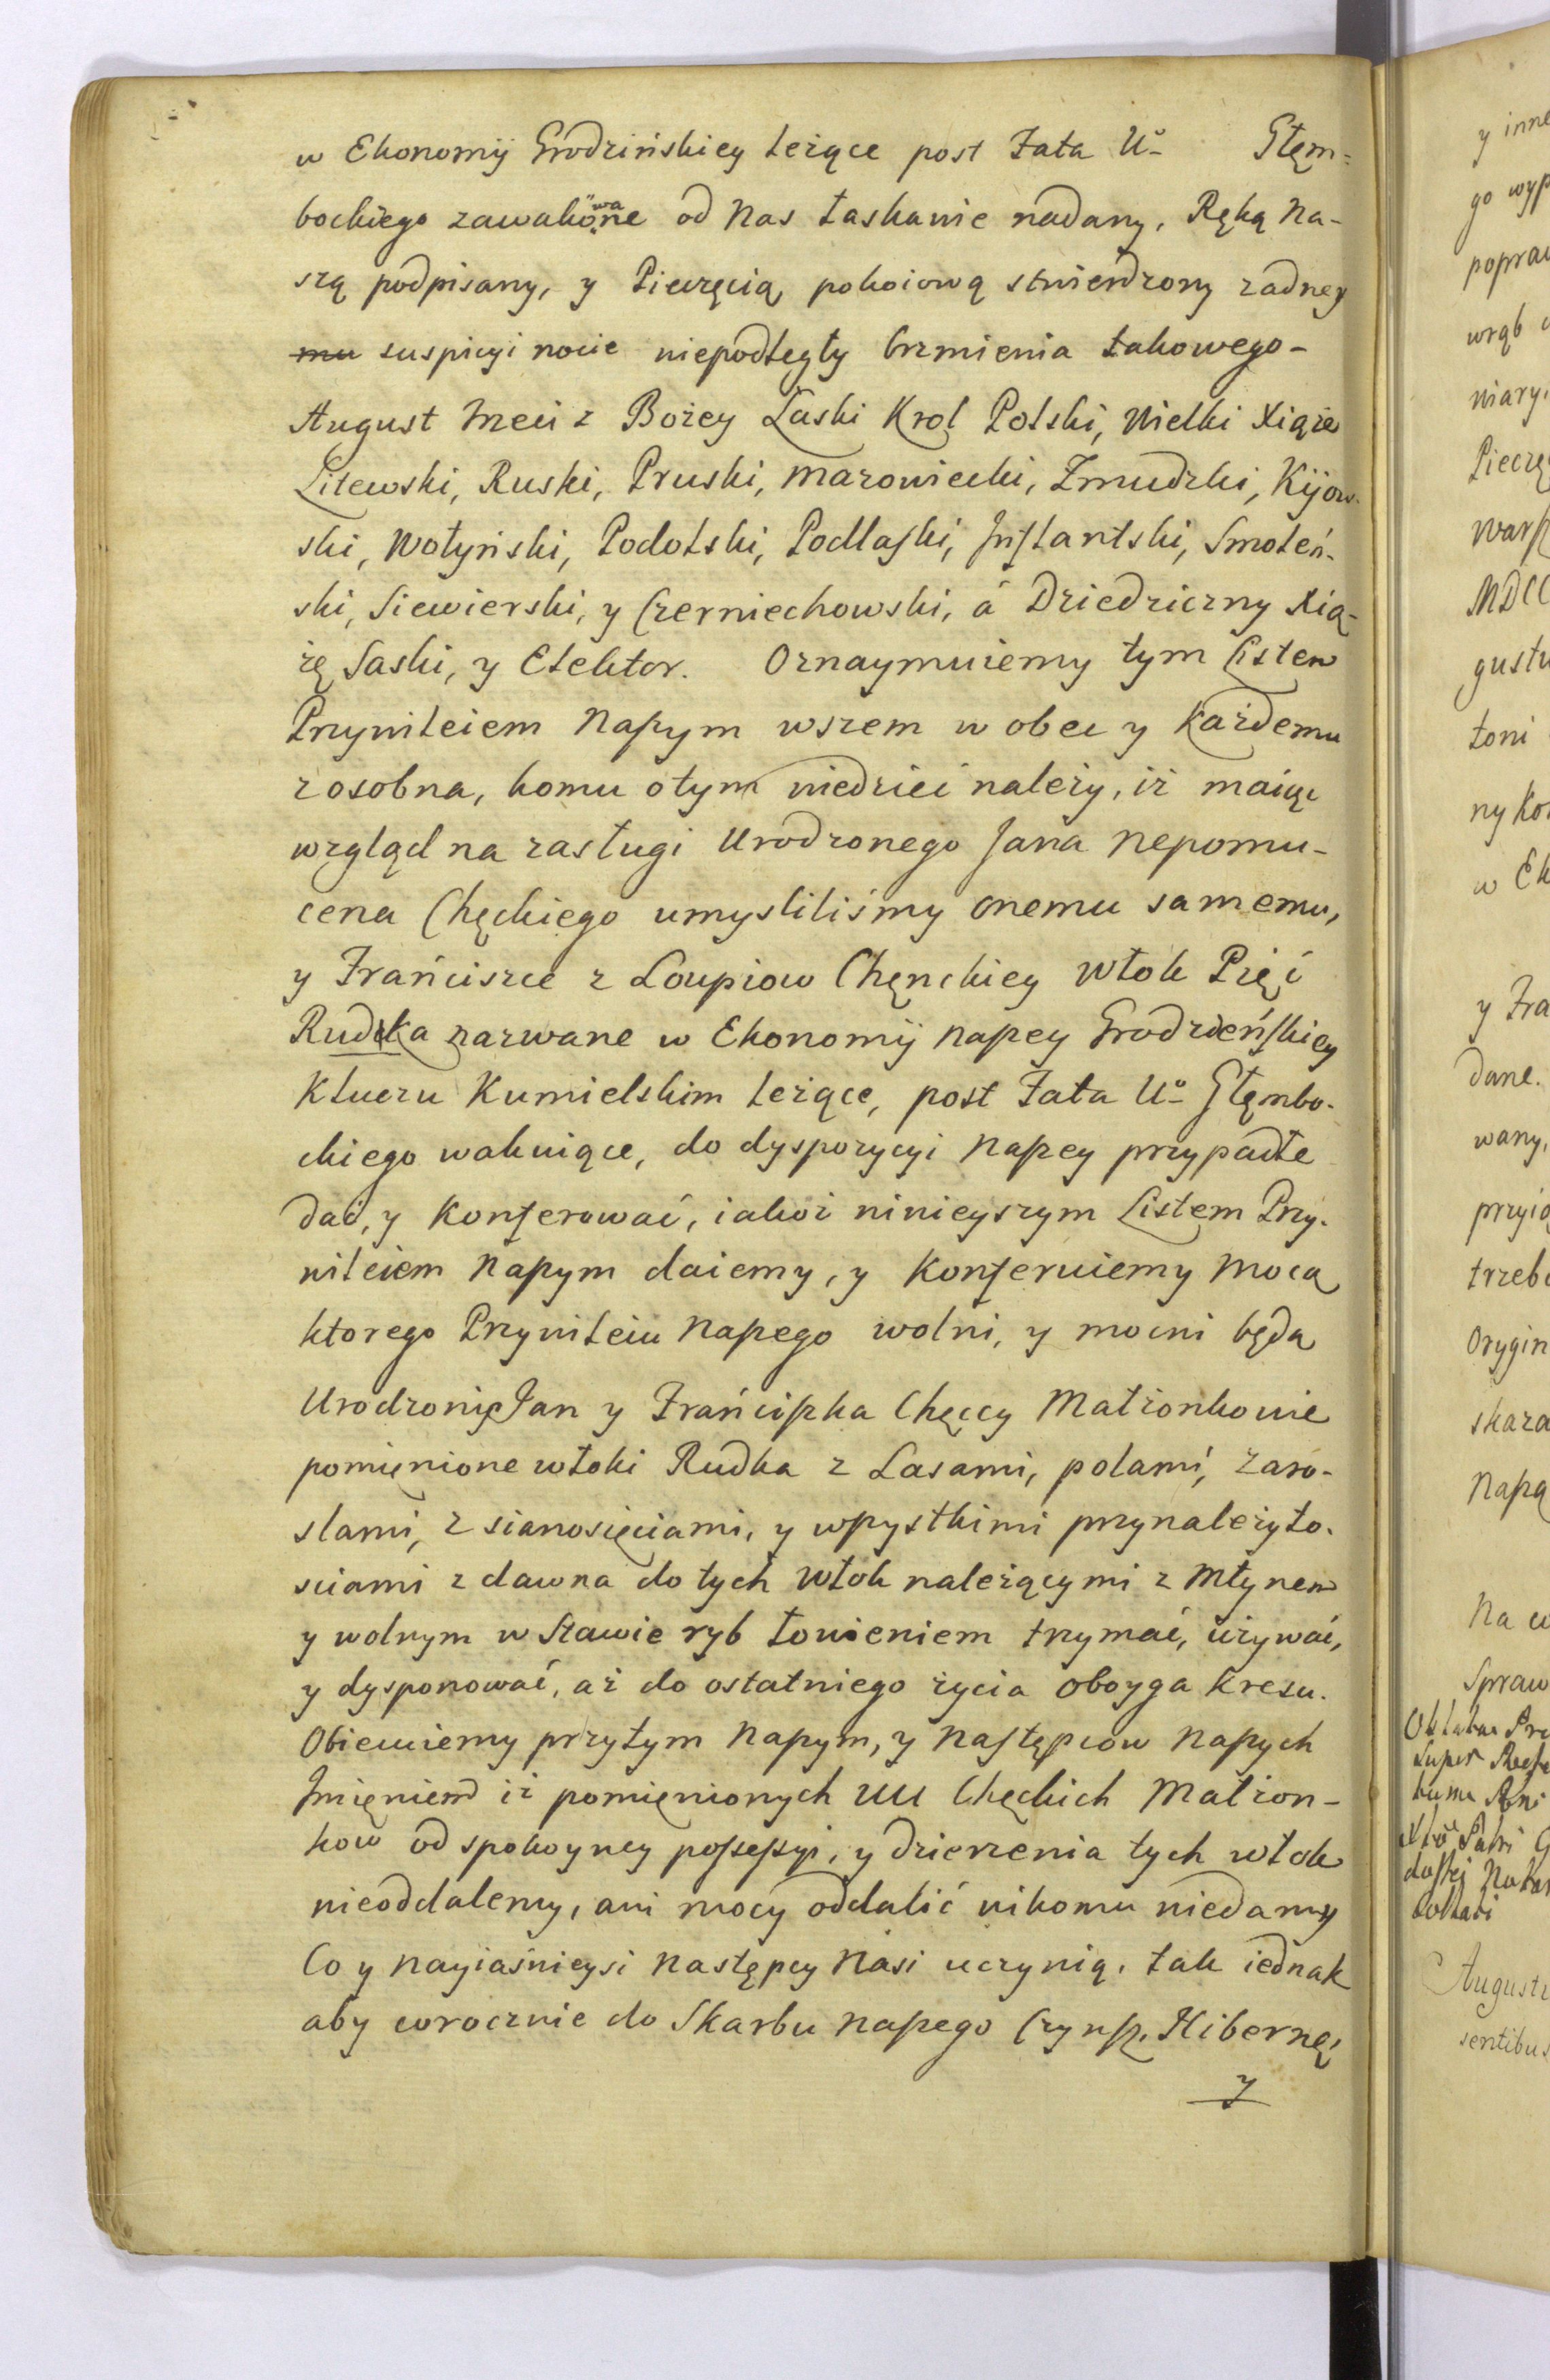 w Ekonomij Grodzińskiey leżące post Fata Uo Głęm-
bockiego zawakowane od Nas łaskawie nadany, Ręką Na-
szą podpisany, y Pieczęcią pokoiową stwierdzony żadney
mu suspicyi nocie niepodległy brzmienia takowego-
August Trzeci z Bożey Łaski Krol Polski, Wielki Xiąże
Litewski, Ruski, Pruski, Mazowiecki, Zmudzki, Kijow-
ski, Wołyński, Podolski, Podlaſki, Inflantski, Smoleń-
ski, Siewierski, y Czerniechowski, á Dziedziczny Xią-
żę Saski, y Elektor. Oznaymuiemy tym Listem
Przywileiem Naſzym wszem w obec y każdemu
z osobna, komu otym wiedzieć należy, iż maiąc
wzgląd na zasługi Urodzonego Jana Nepomu-
cena Chęckiego umysliliśmy onemu samemu,
y Frańciszce z Loupiow Chęnckiey Włok Pięć
Rudka nazwane w Ekonomij naſzey Grodzieńſkiey
Kluczu Kumielskim leżące, post Fata Uo Głęmbo-
ckiego wakuiące, do dyspozycyi Naſzey przypadłe
dać, y konferować, iakoż ninieyszym Listem Przy-
wileiem Naſzym daiemy, y konferuiemy Mocą
ktorego Przywileiu Naſzego wolni, y mocni będą
Urodzonie Jan y Frańciſzka Chęccy Małżonkowie
pomięnione włoki Rudka z Lasami, polami, Zaro-
slami, z sianosięciami, y wſzystkimi przynależyto-
sciami z dawna do tych Włok należącymi z Młynem
y wolnym w Stawie ryb łowieniem trzymać, używać,
y dysponować, aż do ostatniego życia oboyga kresu.
Obiecuiemy przytym Naſzym, y Naſtępcow Naſzych
Imięniem iż pomięnionych UU Chęckich Małżon-
kow od spokoyney poſseſsyi, y dzierzenia tych włok
nieoddalemy, ani mocy oddalić nikomu niedamy
Co y Nayiaśnieysi Następcy Nasi uczynią, tak iednak
aby corocznie do Skarbu Naſzego Czynſz, Hibernę,
y
y inne
go wyp
popraw
wrąb
niary.
Pieczę
Warſz
MDCC
gustu
toni
ny Kor
w Ek
y Fra
dane.
wany,
przyią
trzeb
Orygin
skara
Naſzą
Na
Spraw
Super
Augustu
sentibus